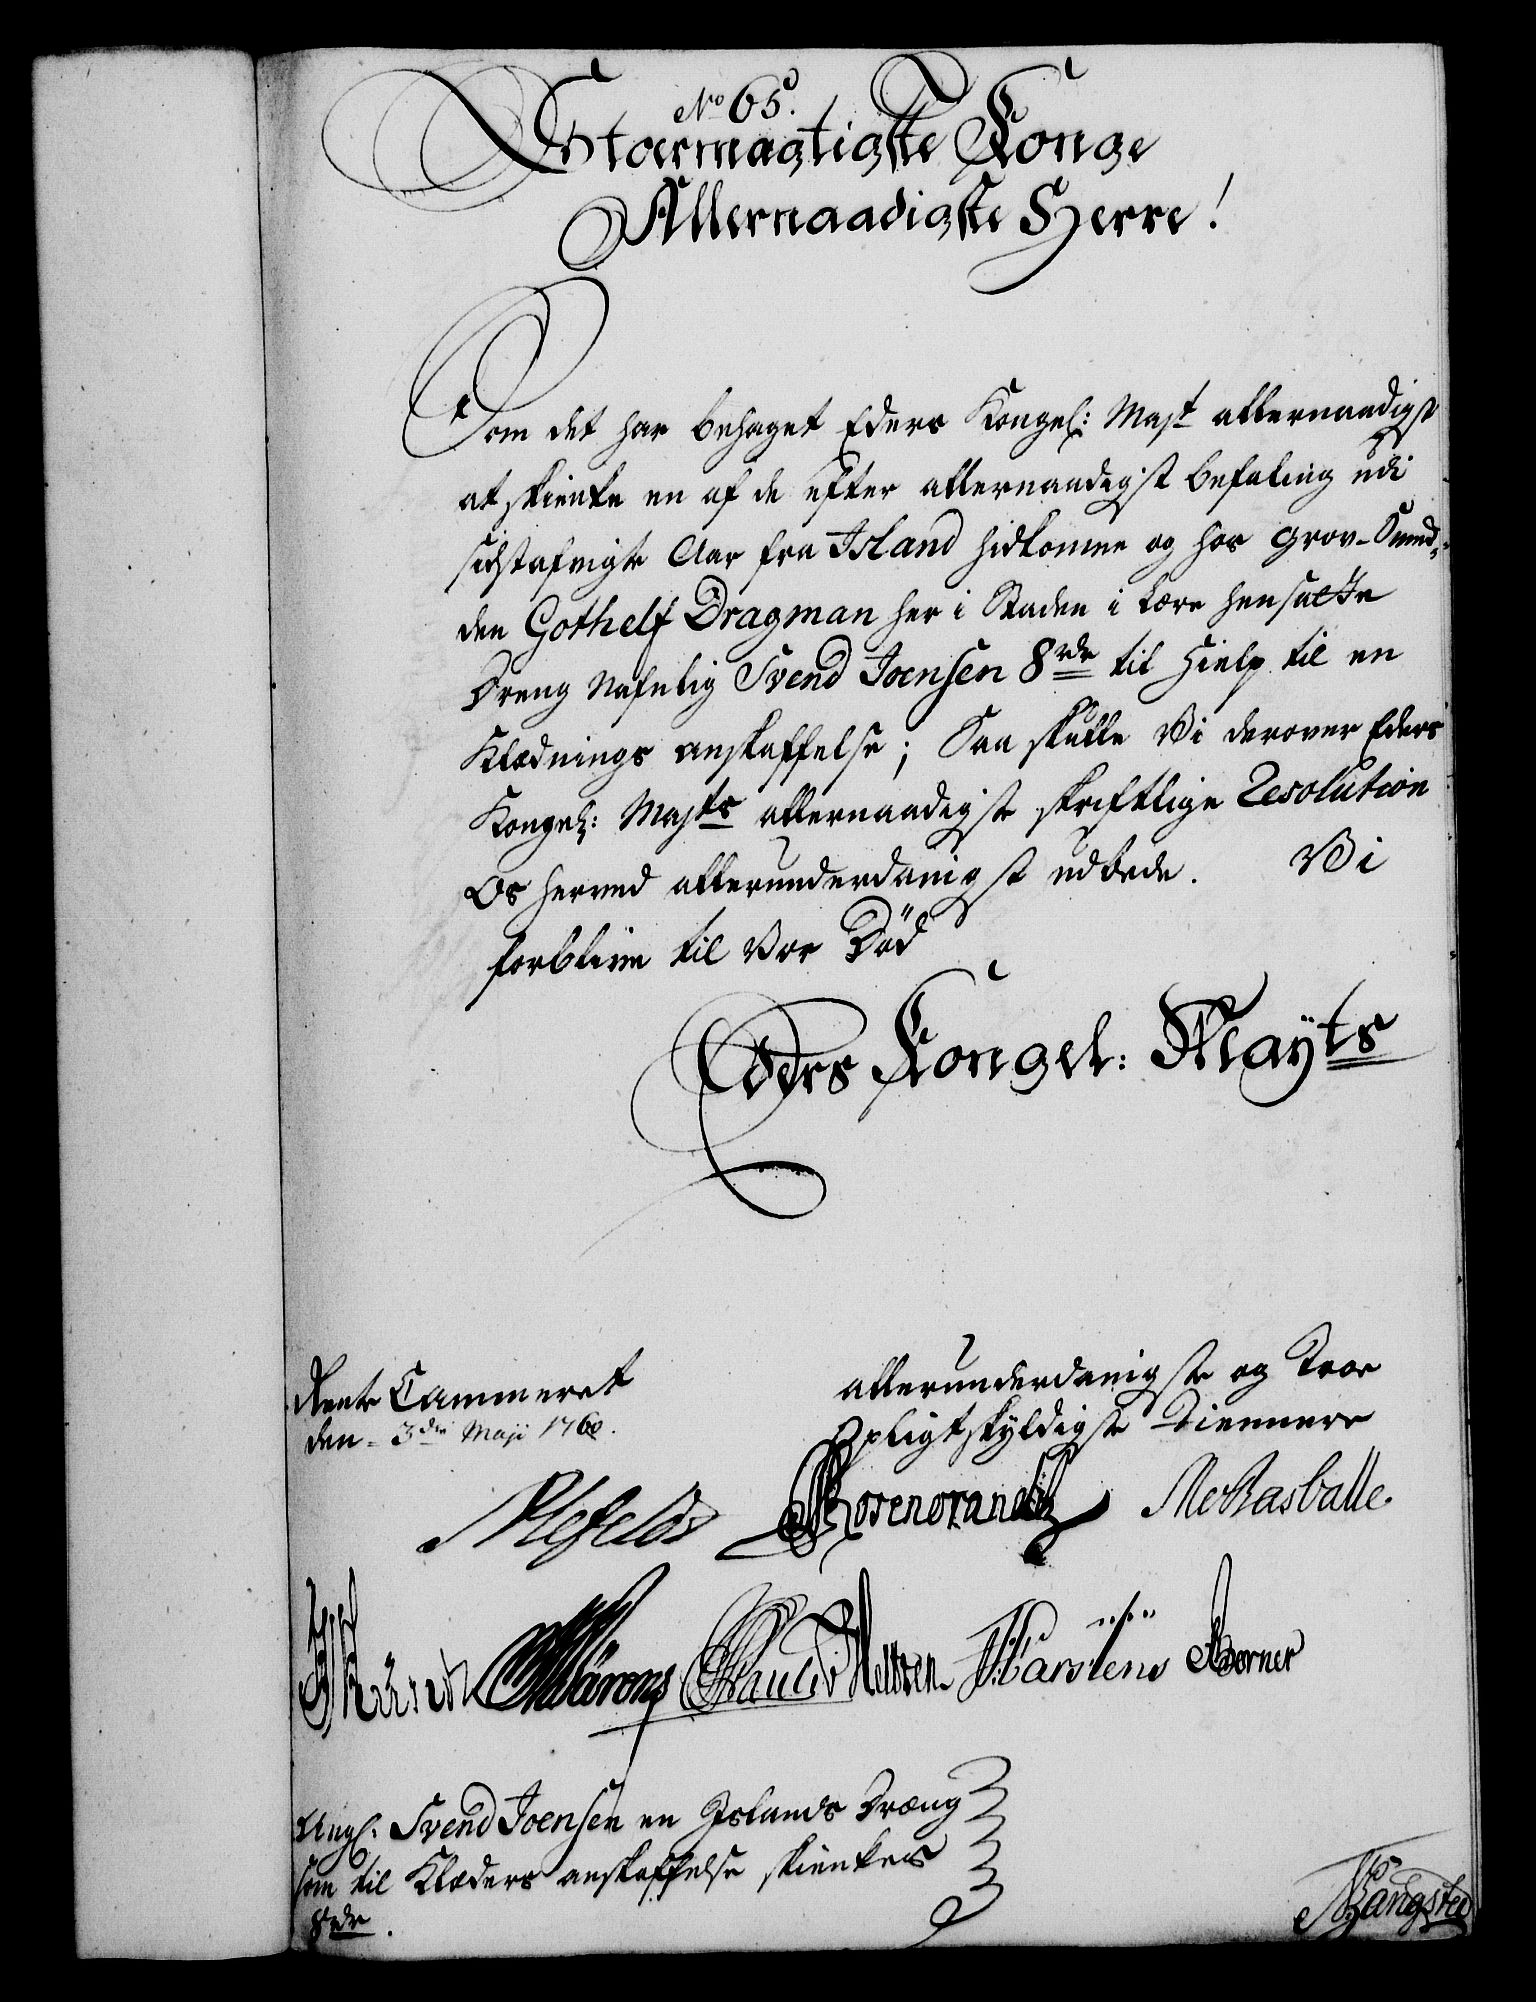 No 65.
Stormægtigste Konge
Allernaadigste Herre!
Som det har behaget Eders Kongel: Majt allernaadigst
at skienke en af de efter allernaadigst befaling udi
sidstafvigte Aar fra Island hidkomne og hos Grov-Smed-
den Gothelf Dragman her i Staden i Lære hensatte
Dreng Nafnlig Svend Joensen 8 rdr til Hielp til en
Klædnings anskaffelse; Saa skulle Vi derover Eders
Kongel: Majts allernaadigste skriftlige Resolution
Os herved allerunderdanigst udbede. Vi
forblive til vor Død
Eders Kongel: Mayts
Rente Cammeret
den 3die Maji 1760.
allerunderdanigste og Troe
pligtskyldigste Tiennere
Ahlefeldt Rosencrantz
Pauli Holtzen Karstens Horner
Ang: Svend Joensen en Islands Dræng
som til Klæders anskaffelse skienkes
8 rdr.
Bangsted